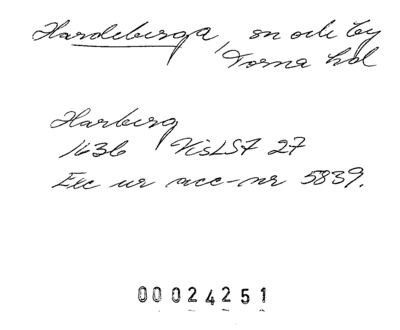 Hardeberga, sn och by
Torna hd
Harberg
1636 VisLSF 27
Exc ur acc-nr 5839.
00024251